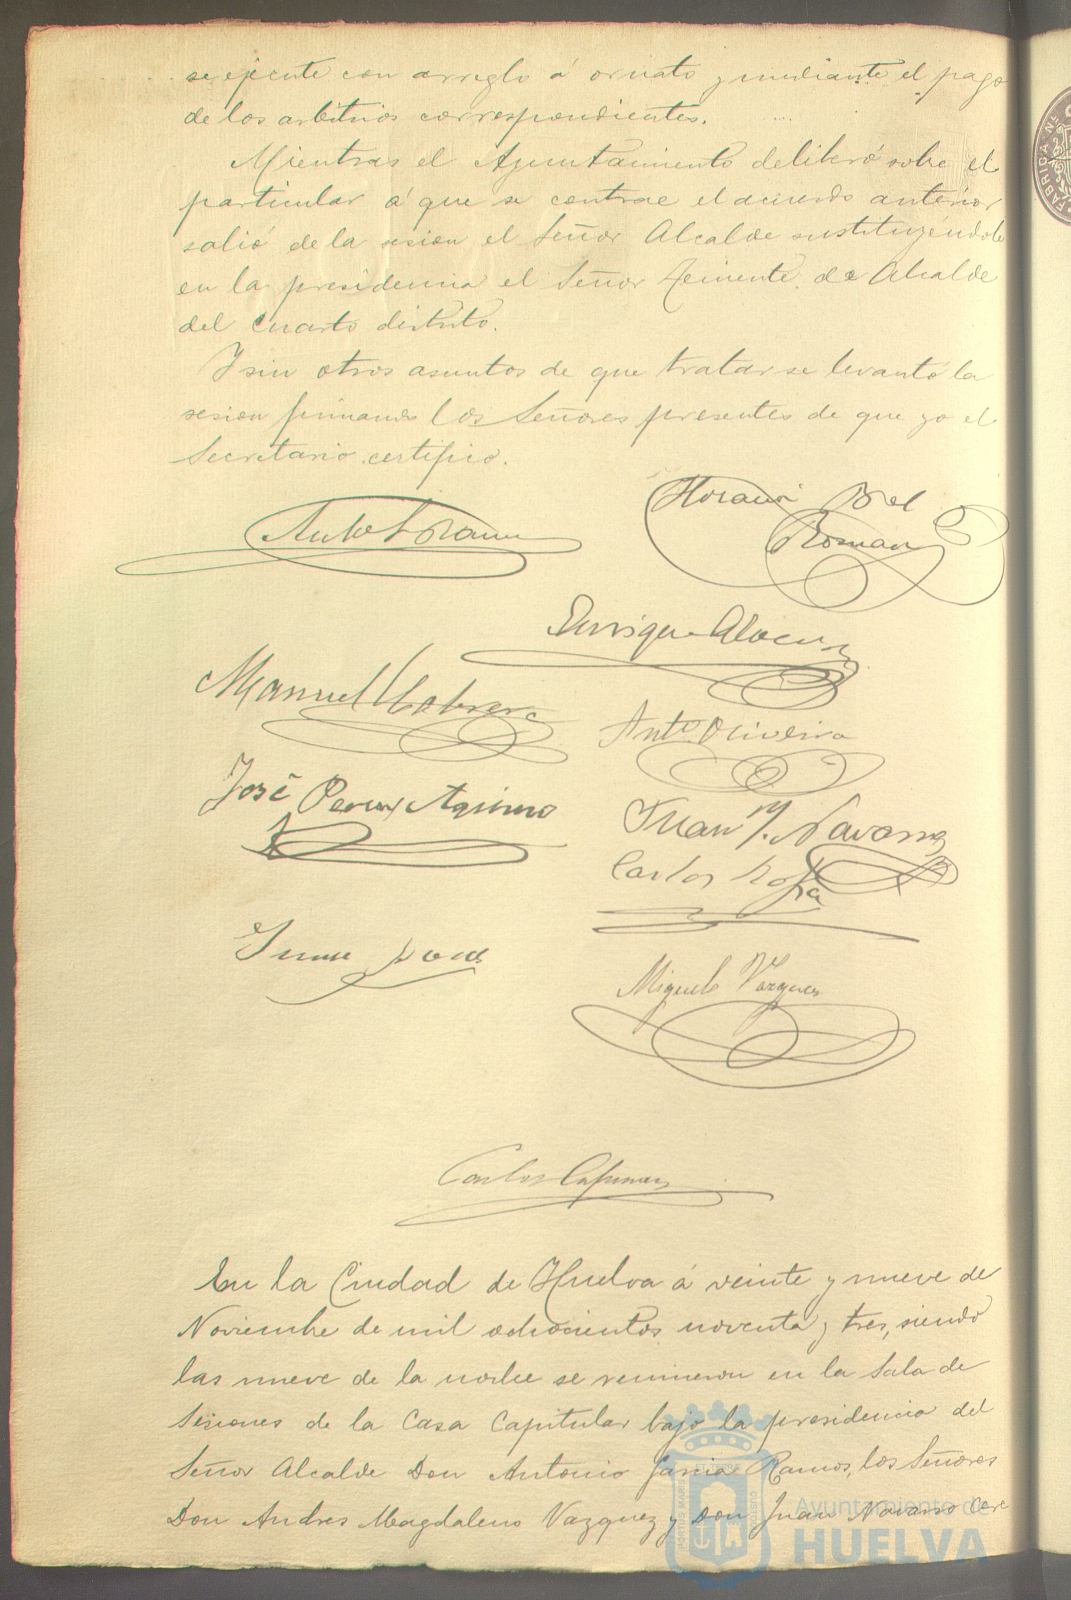 se ejecute con arreglo á ornato y mediante el pago
de los arbitrios correspondientes.
Mientras el Ayuntamiento deliberó sobre el
particular á que se contrae el acuerdo anterior
salió de la sesion el Señor Alcalde sustituyéndole
en la presidencia el Señor Teniente de Alcalde
del cuarto distrito.
Y sin otros asuntos de que tratar se levantó la
sesion firmando los Señores presentes de que yo el
Secretario certifico.
Horacio Bel
Roman
Enrique
Manuel
Antº Oliveira
José Perez
Juan M. Navarro
Carlos
Miguel Vazquez
Carlos
En la Ciudad de Huelva á veinte y nueve de
Noviembre de mil ochocientos noventa y tres, siendo
las nueve de la noche se reunieron en la Sala de
Sesiones de la Casa Capitular bajo la presidencia del
Señor Alcalde Don Antonio Garcia Ramos, los Señores
Don Andres Magdaleno Vazquez y Don Juan Navarro
Ayuntamiento de
HUELVA